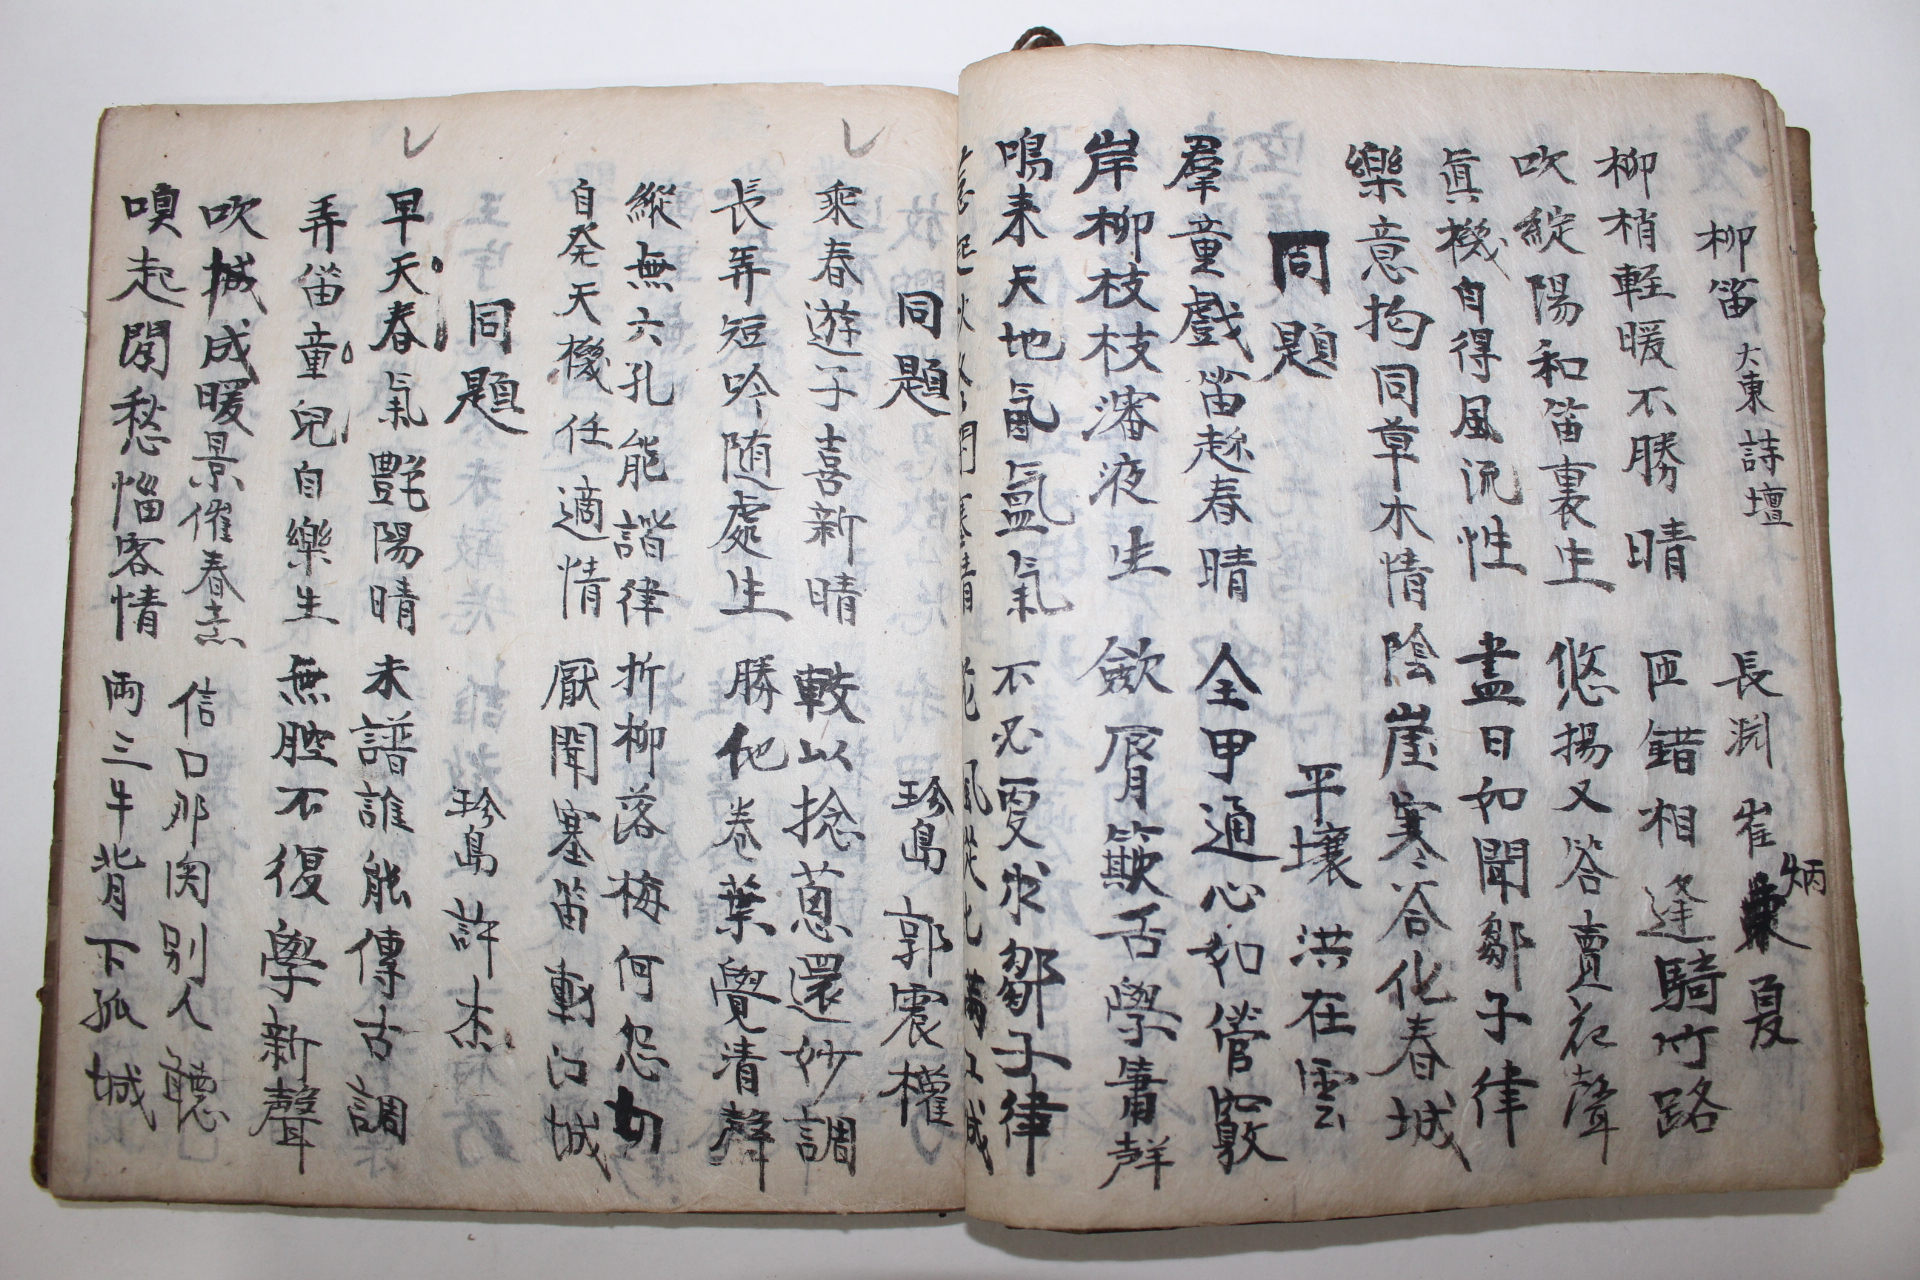 柳笛 大東詩壇 長渕 崔炳夏
柳梢軽暖不勝晴 匝錯相逢騎竹路
吹綻陽和笛裏生 悠揚又答賣花聲
眞機自得風流性 盡日如聞鄒子律
樂意均同草木情 陰崖寒谷化春城
同題 平壤 洪在雲
羣童戲笛趂春晴 全甲通心如管竅
岸柳枝枝瀋液生 歛脣欺舌學簫聲
鳴来天地氤氳氣 不必更求鄒子律
同題 珍島 郭震權
乘春遊子喜新晴 較以捻蔥還妙調
長弄短吟随處生 勝他卷葉覺清聲
縱無六孔能諧律 折柳落梅何怨切
自發天機任適情 厭聞塞笛動江城
同題 珍島 許杰
早天春氣艷陽晴 未譜誰能傳古調
弄笛童兒自樂生 無腔不復學新聲
吹城成暖景催春 信口那関别人聽
嗅起閑愁惱客情 両三牛背下孤城